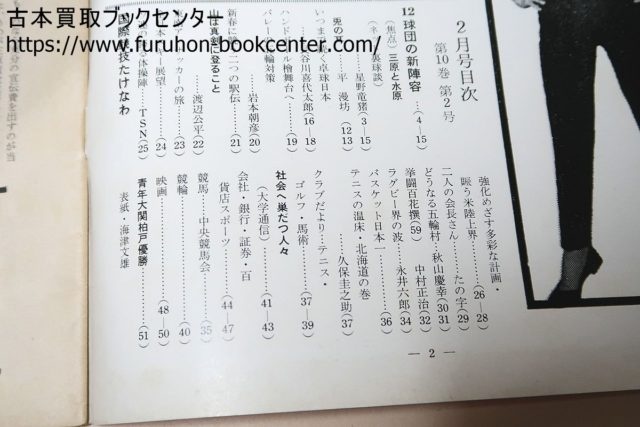 古本買取ブックセンター
https://www.furuhon-bookcenter.com/
2月号目次
第10巻 第2号
12球団の新陣容……(4―15)
(焦点) 三原と水原
(ネット裏球談)
……星野竜猪(3―15)
兎の……平 漫坊(12 13)
いつまで続く卓球日本
……谷川喜代太郎(16―18)
ハンドボール檜舞台へ……(19)
バレーの五輪対策
……岩本朝彦(20)
新春に競う二つの駅伝……(21)
山は真剣に登ること
……渡辺公平(22)
アッカーの旅……(23)
展望……(24)
体操陣……TSN(25)
国際競技たけなわ
強化めざす多彩な計画・
賑う米陸上界……(26―28)
二人の会長さん……たの字(29)
どうなる五輪村……秋山慶幸(30 31)
拳闘百花撰(59)……中村正治(32)
ラグビー界の波……永井六郎(34)
バスケット日本一……(36)
テニスの温床・北海道の巻
……久保圭之助(37)
クラブだより…テニス・
ゴルフ・馬術……(37―39)
社会へ巣だつ人々
(大学通信)……(41―43)
会社・銀行・証券・百
貨店スポーツ……(44―47)
競馬……中央競馬会……(35)
競輪……(40)
映画……(48―50)
青年大関柏戸優勝……(51)
表紙・海津文雄
― 2 ―
分の宣伝費を出すのが当